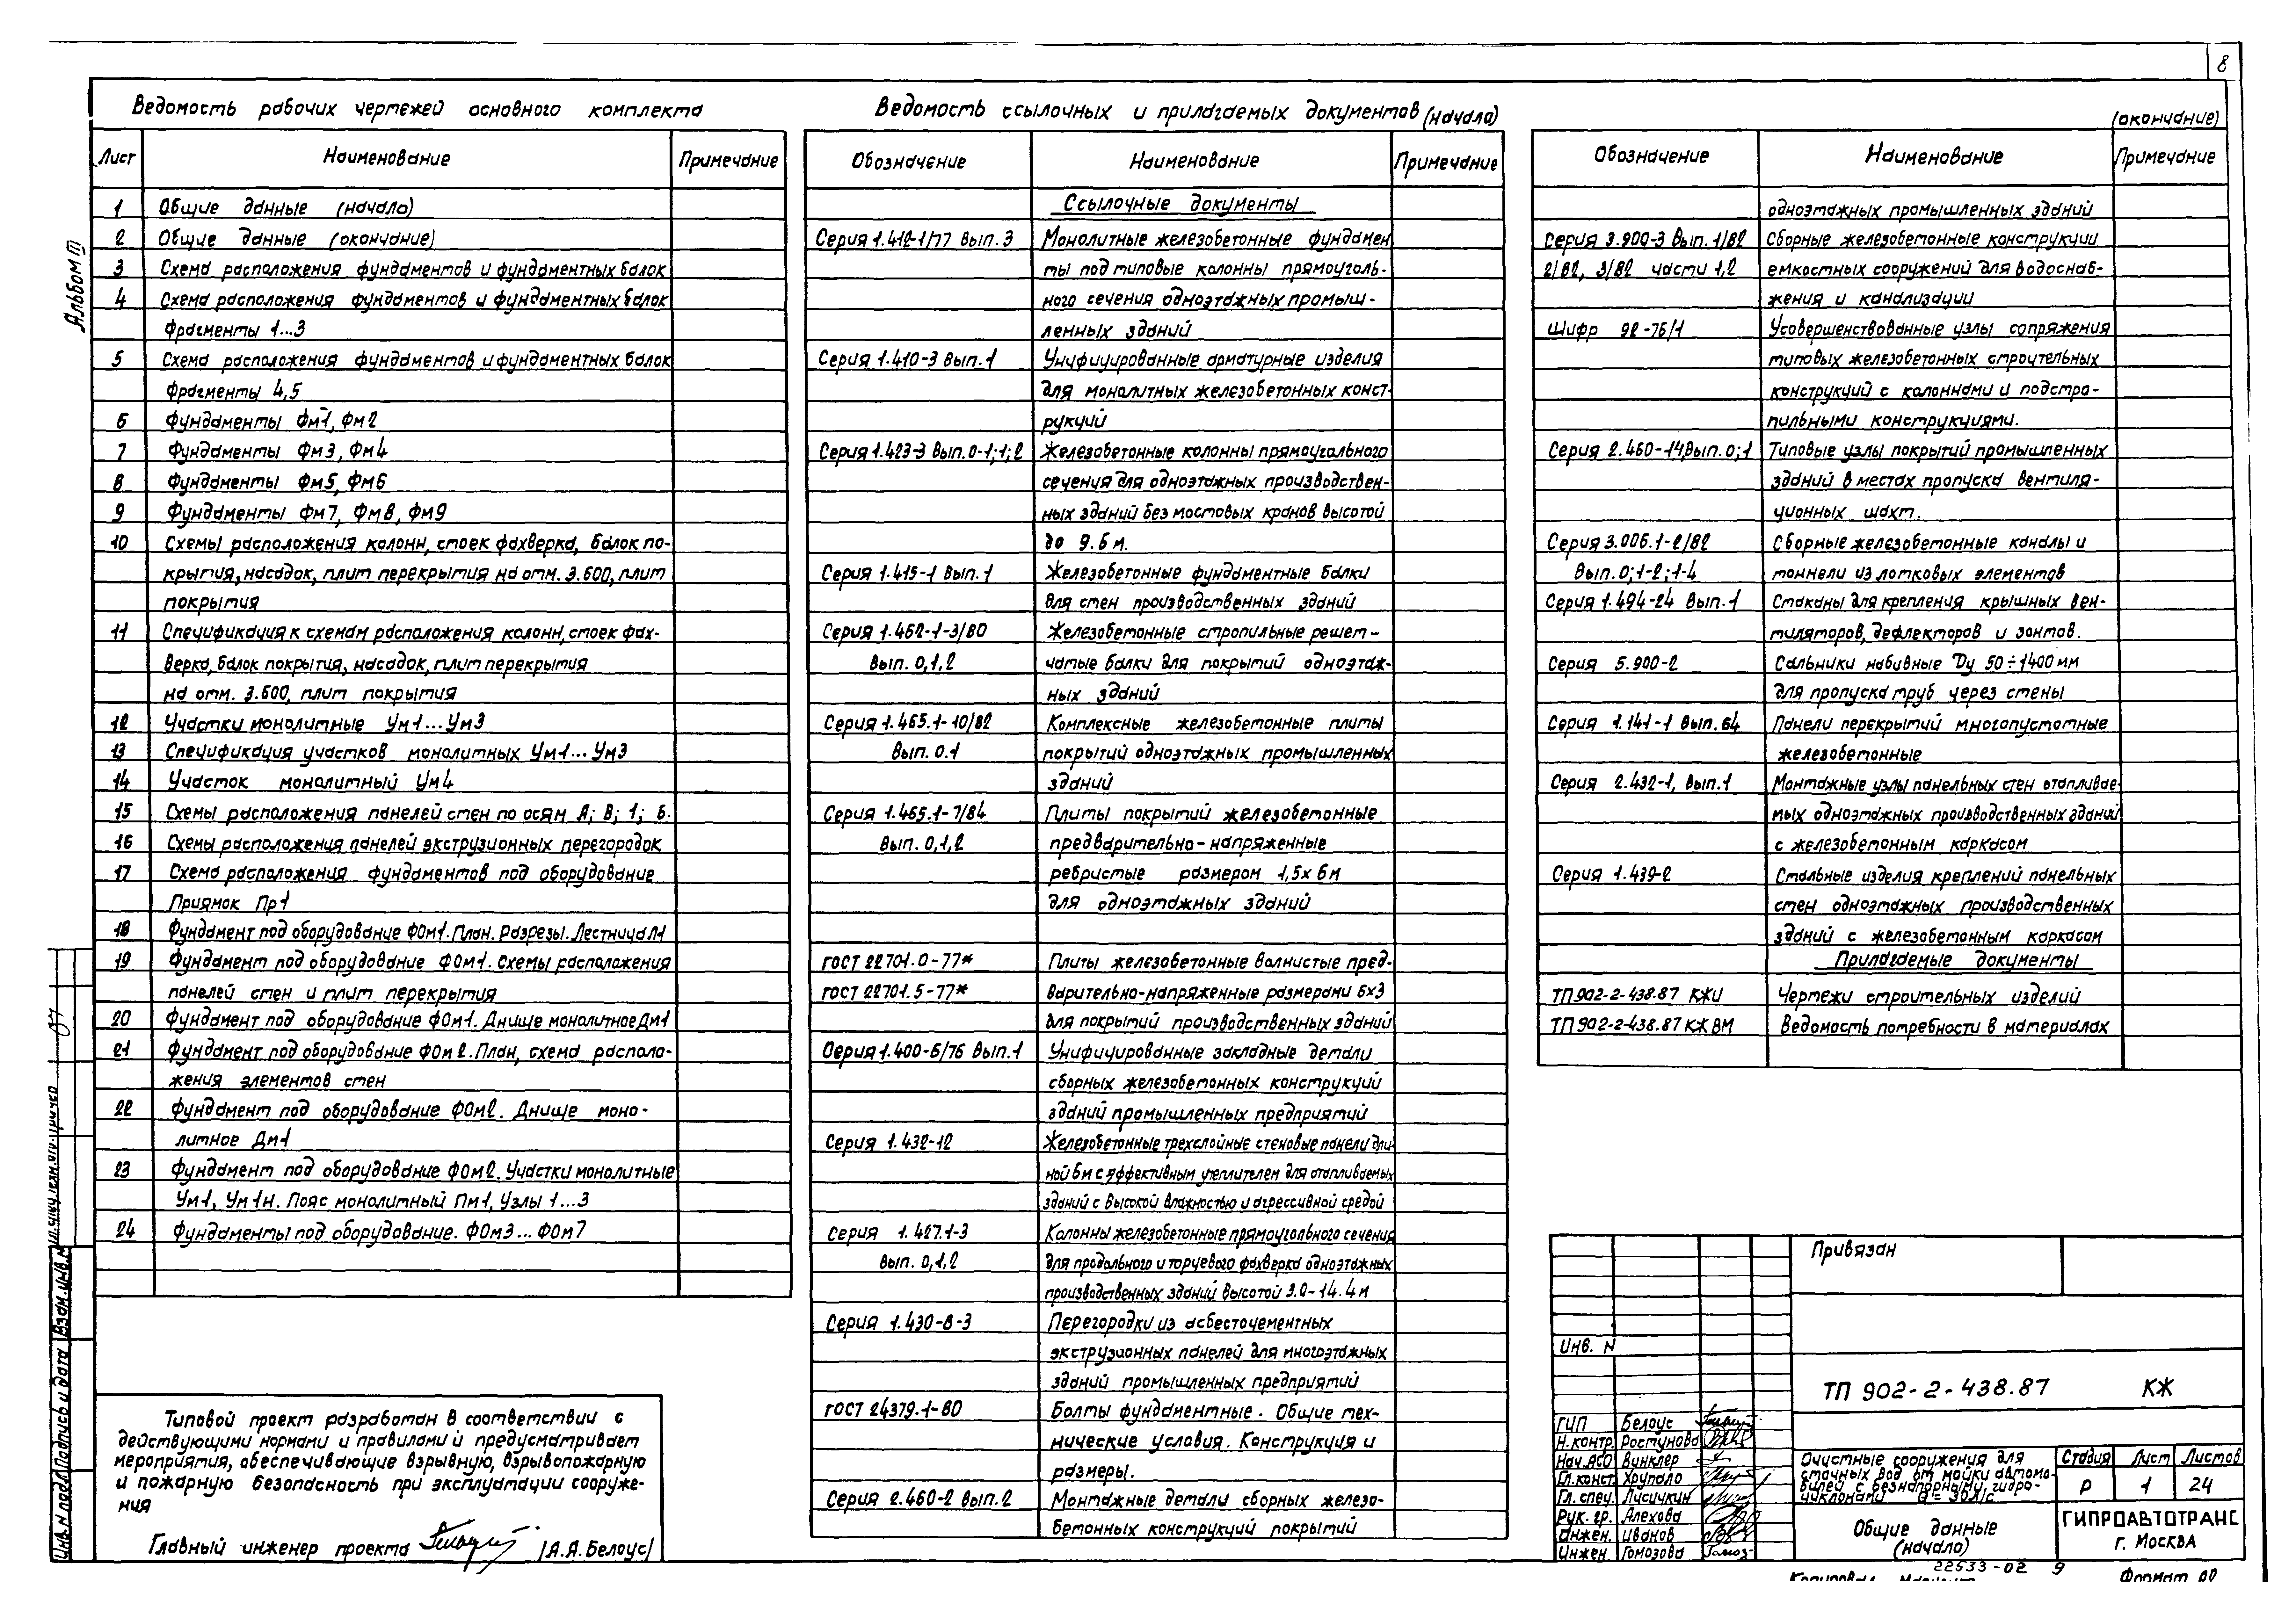 8
Альбом III
Ведомость рабочих чертежей основного комплекта
Лист Наименование Примечание
1 Общие данные (начало)
2 Общие данные (окончание)
3 Схема расположения фундаментов и фундаментных балок
4 Схема расположения фундаментов и фундаментных балок
Фрагменты 1...3
5 Схема расположения фундаментов и фундаментных балок
Фрагменты 4,5
6 Фундаменты Фм1, Фм2
7 Фундаменты Фм3, Фм4
8 Фундаменты Фм5, Фм6
9 Фундаменты Фм7, Фм8, Фм9
10 Схемы расположения колонн, стоек фахверка, балок по-
крытия, насадок, плит перекрытия на отм. 3.600, плит
покрытия
11 Спецификация к схемам расположения колонн, стоек фах-
верка, балок покрытия, насадок, плит перекрытия
на отм. 3.600, плит покрытия
12 Участки монолитные Ум1...Ум3
13 Спецификация участков монолитных Ум1...Ум3
14 Участок монолитный Ум4
15 Схемы расположения панелей стен по осям А; В; 1; 6.
16 Схемы расположения панелей экструзионных перегородок
17 Схема расположения фундаментов под оборудование
Приямок Пр1
18 Фундамент под оборудование ФОм1. План. Разрезы. Лестница Л1
19 Фундамент под оборудование ФОм1. Схемы расположения
панелей стен и плит перекрытия
20 Фундамент под оборудование ФОм1. Днище монолитное Дм1
21 Фундамент под оборудование ФОм2. План, схема располо-
жения элементов стен
22 Фундамент под оборудование ФОм2. Днище моно-
литное Дм1
23 Фундамент под оборудование ФОм2. Участки монолитные
Ум1, Ум1н. Пояс монолитный Пм1, Узлы 1...3
24 Фундаменты под оборудование. ФОм3...ФОм7
Типовой проект разработан в соответствии с
действующими нормами и правилами и предусматривает
мероприятия, обеспечивающие взрывную, взрывопожарную
и пожарную безопасность при эксплуатации сооруже-
ния
Главный инженер проекта /А.А.Белоус/
Ведомость ссылочных и прилагаемых документов (начало)
Обозначение Наименование Примечание
Ссылочные документы
Серия 1.412-1/77 Вып. 3 Монолитные железобетонные фундамен
ты под типовые колонны прямоуголь-
ного сечения одноэтажных промыш-
ленных зданий
Серия 1.410-3 Вып. 1 Унифицированные арматурные изделия
для монолитных железобетонных конст-
рукций
Серия 1.423-3 Вып. 0-1;1;2 Железобетонные колонны прямоугольного
сечения для одноэтажных производствен-
ных зданий без мостовых кранов высотой
до 9.6 м.
Серия 1.415-1 Вып. 1 Железобетонные фундаментные балки
для стен производственных зданий
Серия 1.462-1-3/80 Железобетонные стропильные решет-
Вып. 0,1,2 чатые балки для покрытий одноэтаж-
ных зданий
Серия 1.465.1-10/82 Комплексные железобетонные плиты
Вып. 0.1 покрытий одноэтажных промышленных
зданий
Серия 1.465.1-7/84 Плиты покрытий железобетонные
Вып. 0,1,2 предварительно-напряженные
ребристые размером 1,5х6м
для одноэтажных зданий
ГОСТ 22701.0-77* Плиты железобетонные волнистые пред-
ГОСТ 22701.5-77* варительно-напряженные размерами 6х3
для покрытий производственных зданий
Серия 1.400-6/76 Вып. 1 Унифицированные закладные детали
сборных железобетонных конструкций
зданий промышленных предприятий
Серия 1.432-12 Железобетонные трехслойные стеновые панели дли-
ной 6м с эффективным утеплителем для отапливаемых
зданий с высокой влажностью и агрессивной средой
Серия 1.427.1-3 Колонны железобетонные прямоугольного сечения
Вып. 0,1,2 для продольного и торцевого фахверка одноэтажных
производственных зданий высотой 3.0-14.4м
Серия 1.430-8-3 Перегородки из асбестоцементных
экструзионных панелей для многоэтажных
зданий промышленных предприятий
ГОСТ 24379.1-80 Болты фундаментные. Общие тех-
нические условия. Конструкция и
размеры.
Серия 2.460-2 Вып. 2 Монтажные детали сборных железо-
бетонных конструкций покрытий
(окончание)
Обозначение Наименование Примечание
одноэтажных промышленных зданий
Серия 3.900-3 Вып. 1/82 Сборные железобетонные конструкции
2/82, 3/82 части 1,2 емкостных сооружений для водоснаб-
жения и канализации
Шифр 92-76/1 Усовершенствованные узлы сопряжения
типовых железобетонных строительных
конструкций с колоннами и подстро-
пильными конструкциями.
Серия 2.460-14, Вып. 0;1 Типовые узлы покрытий промышленных
зданий в местах пропуска вентиля-
ционных шахт.
Серия 3.006.1-2/82 Сборные железобетонные каналы и
Вып. 0;1-2;1-4 тоннели из лотковых элементов
Серия 1.494-24 Вып. 1 Стаканы для крепления крышных вен-
тиляторов, дефлекторов и зонтов.
Серия 5.900-2 Сальники набивные Ду 50÷1400 мм
для пропуска труб через стены
Серия 1.141-1 Вып. 64 Панели перекрытий многопустотные
железобетонные
Серия 2.432-1, Вып. 1 Монтажные узлы панельных стен отапливае-
мых одноэтажных производственных зданий
с железобетонным каркасом
Серия 1.439-2 Стальные изделия креплений панельных
стен одноэтажных производственных
зданий с железобетонным каркасом
Прилагаемые документы
ТП 902-2-438.87 КЖИ Чертежи строительных изделий
ТП 902-2-438.87 КЖ ВМ Ведомость потребности в материалах
Привязан
Инв. N
ТП 902-2-438.87 КЖ
ГИП Белоус
Н.контр. Ростунова
Нач.АСО Винклер
Гл.конст. Хрупало
Гл. спец. Лисичкин
Рук. гр. Алехова
Инжен. Иванов
Инжен. Гомозова
Очистные сооружения для
сточных вод от мойки автомо-
билей с безнапорными гидро-
циклонами Q = 30л/с
Стадия Лист Листов
Р 1 24
Общие данные
(начало)
ГИПРОАВТОТРАНС
г. Москва
22533-02 9
Копировал
Формат А2
Инв. N подл. Подпись и дата Взам. инв. N